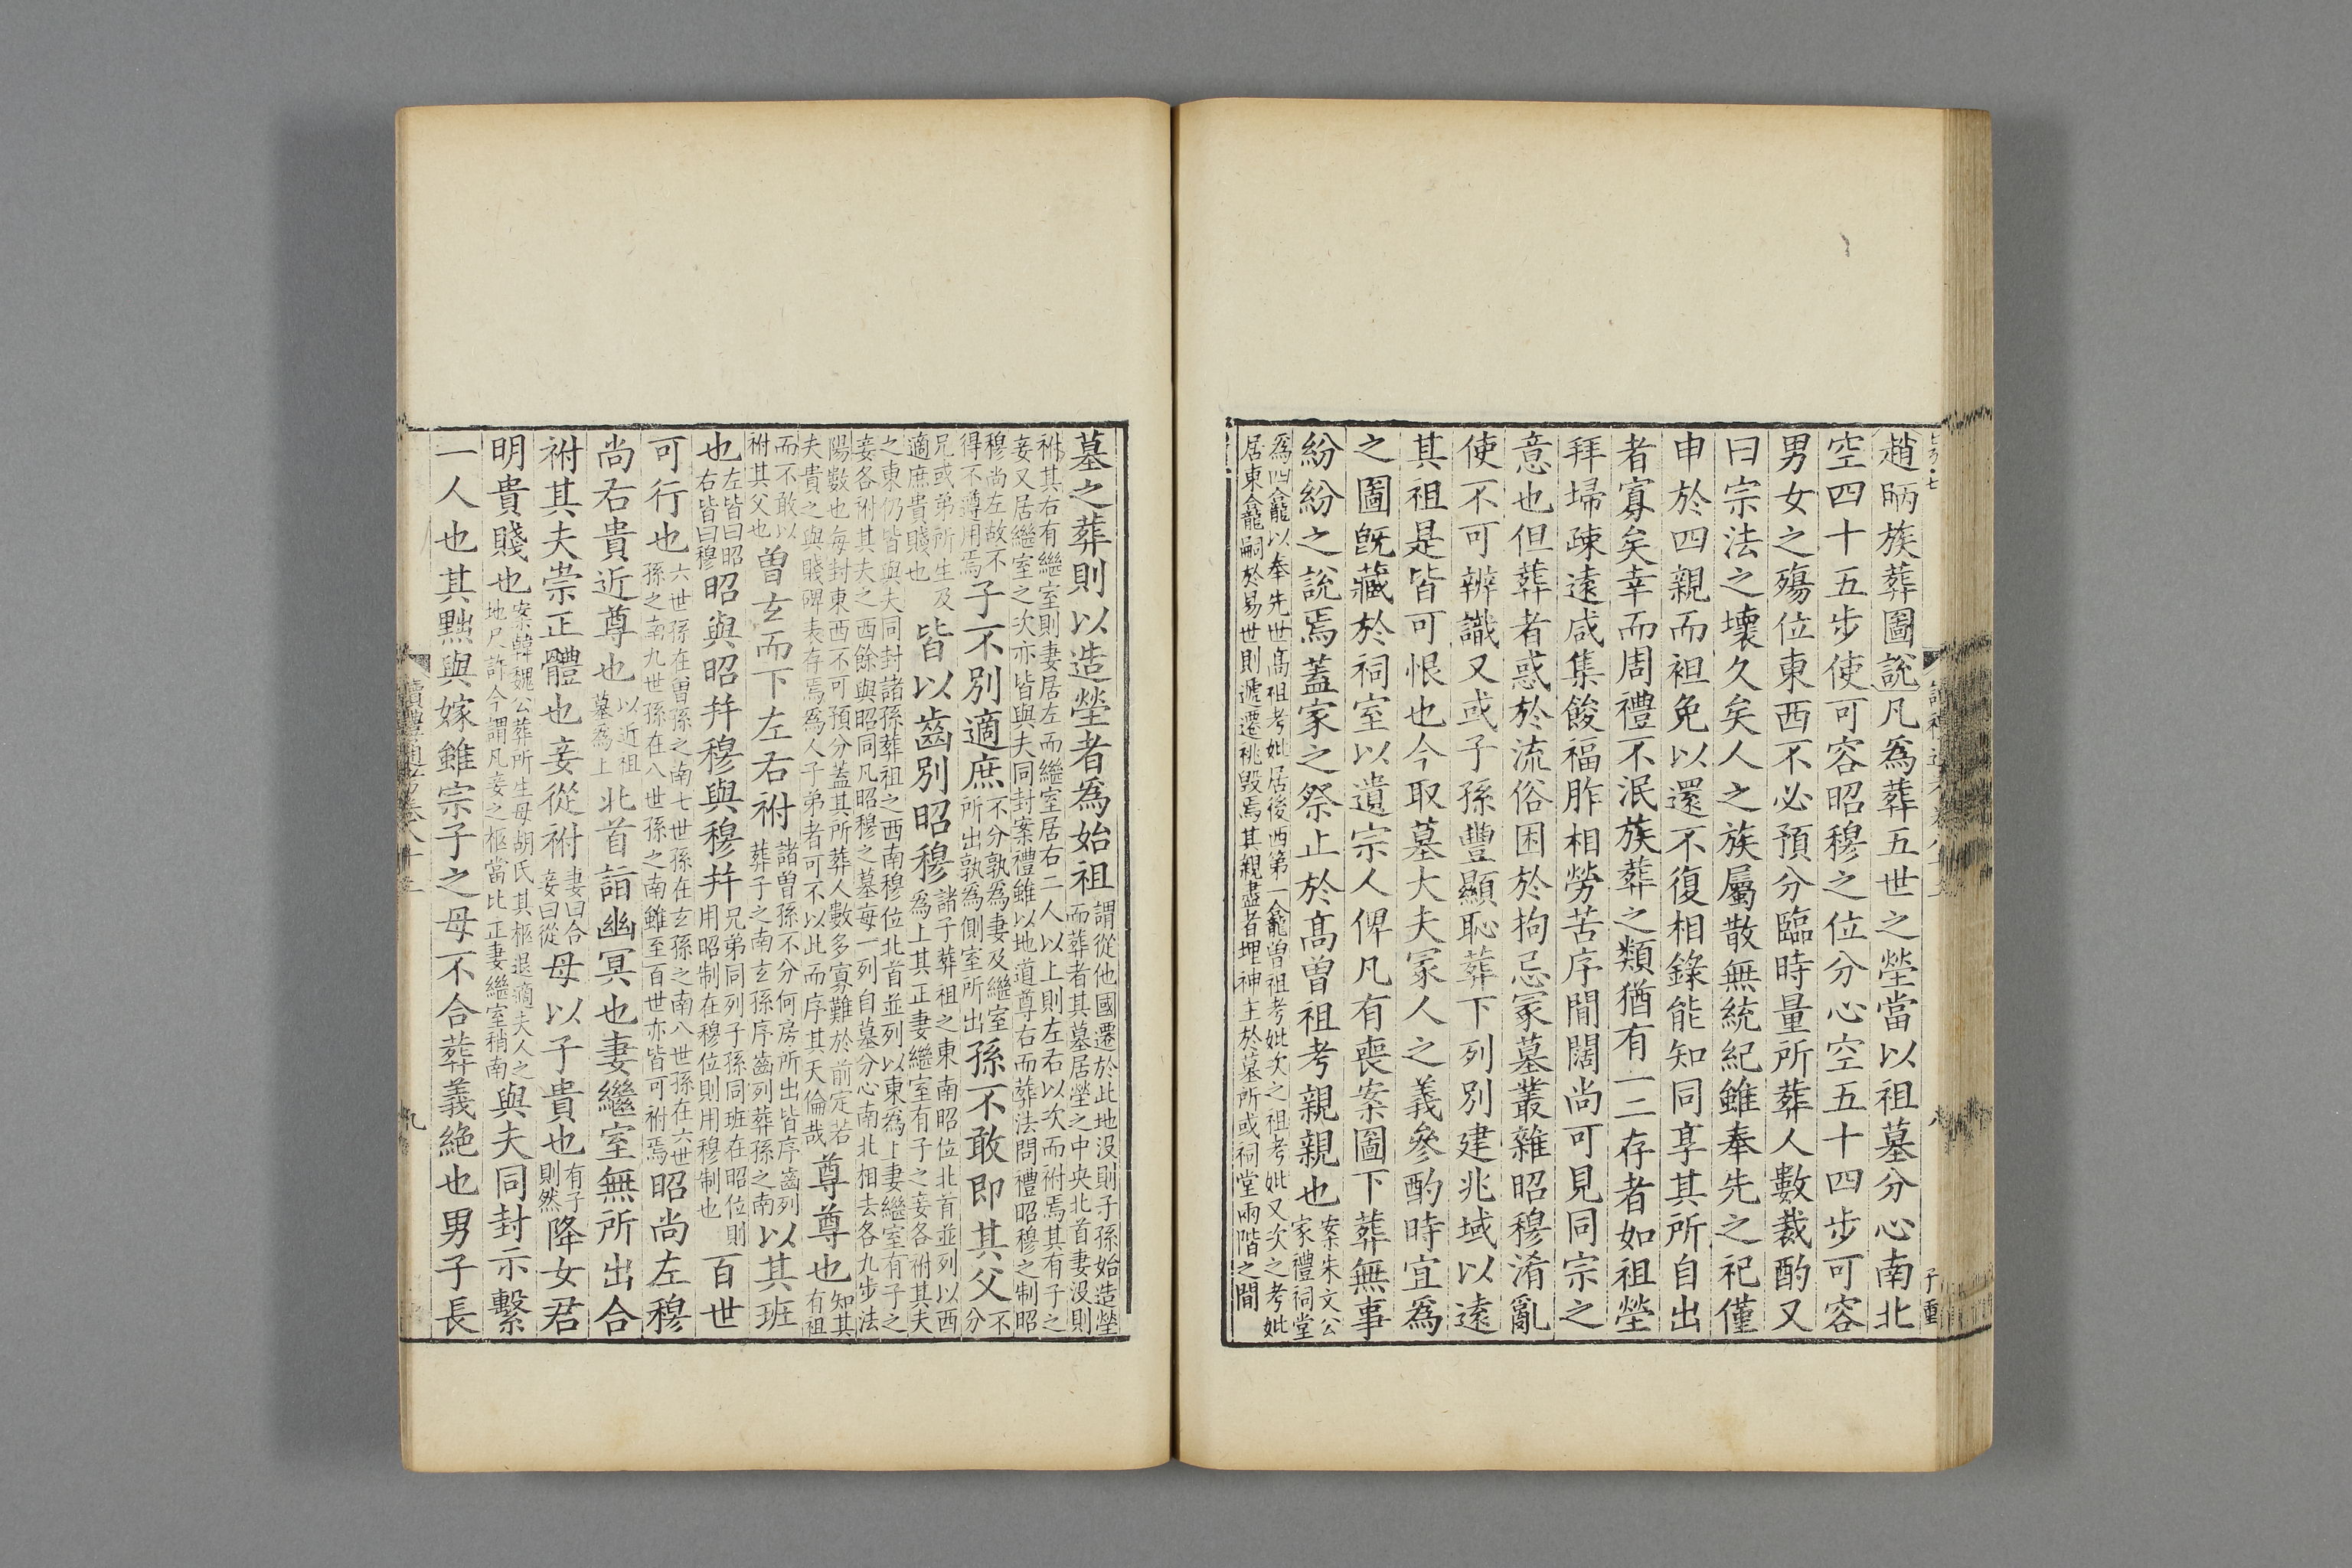 趙昞族葬圖說凡爲葬五世之塋當以祖墓分心南北
空四十五步使可容昭穆之位分心空五十四步可容
男女之殤位東西不必預分臨時量所葬人數裁酌又
曰宗法之壞久矣人之族屬散無統紀雖奉先之祀僅
申於四親而袒免以還不復相錄能知同享其所自出
者寡矣幸而周禮不泯族葬之類猶有一二存者如祖塋
拜埽疎遠咸集餕福胙相勞苦序間闊尚可見同宗之
意也但葬者惑於流俗困於拘忌冢墓叢雜昭穆淆亂
使不可辨識又或子孫豐顯恥葬下列別建兆域以遠
其祖是皆可恨也今取墓大夫冢人之義參酌時宜爲
之圖旣藏於祠室以遺宗人俾凡有喪案圖下葬無事
紛紛之說焉蓋家之祭止於髙曾祖考親親也案朱文公
家禮祠堂
爲四龕以奉先世髙祖考妣居後西第一龕曾祖考妣次之祖考妣又次之考妣
居東龕嗣於易世則遞遷祧毁焉其親盡者埋神主於墓所或祠堂兩階之間
墓之葬則以造塋者爲始祖謂從他國遷於此地沒則子孫始造塋
而葬者其墓居塋之中央北首妻沒則
祔其右有繼室則妻居左而繼室居右二人以上則左右以次而祔焉其有子之
妾又居繼室之次亦皆與夫同封案禮雖以地道尊右而葬法問禮昭穆之制昭
穆尚左故不
得不遵用焉子不別適庶不分孰爲妻及繼室
所出孰爲側室所出孫不敢即其父不
分
兄或弟所生及
適庶貴賤也皆以齒別昭穆諸子葬祖之東南昭位北首並列以西
爲上其正妻繼室有子之妾各祔其夫
之東仍皆與夫同封諸孫葬祖之西南穆位北首並列以東爲上妻繼室有子之
妾各祔其夫之西餘與昭同凡昭穆之墓每一列自墓分心南北相去各九步法
陽數也每封東西不可預分蓋其所葬人數多寡難於前定若
夫貴之與賤碑表存焉爲人子弟者可不以此而序其天倫哉尊尊也知其
有祖
而不敢以
祔其父也曾玄而下左右祔諸曾孫不分何房所出皆序齒列
葬子之南玄孫序齒列葬孫之南以其班
也左皆曰昭
右皆曰穆昭與昭幷穆與穆幷兄弟同列子孫同班在昭位則
用昭制在穆位則用穆制也百世
可行也六世孫在曾孫之南七世孫在玄孫之南八世孫在六世
孫之南九世孫在八世孫之南雖至百世亦皆可祔焉昭尚左穆
尚右貴近尊也以近祖
墓爲上北首詣幽冥也妻繼室無所出合
祔其夫崇正體也妾從祔妻曰合
妾曰從母以子貴也有子
則然降女君
明貴賤也案韓魏公葬所生母胡氏其柩退適夫人之
地尺許今謂凡妾之柩當比正妻繼室稍南與夫同封示繫
一人也其黜與嫁雖宗子之母不合葬義絶也男子長